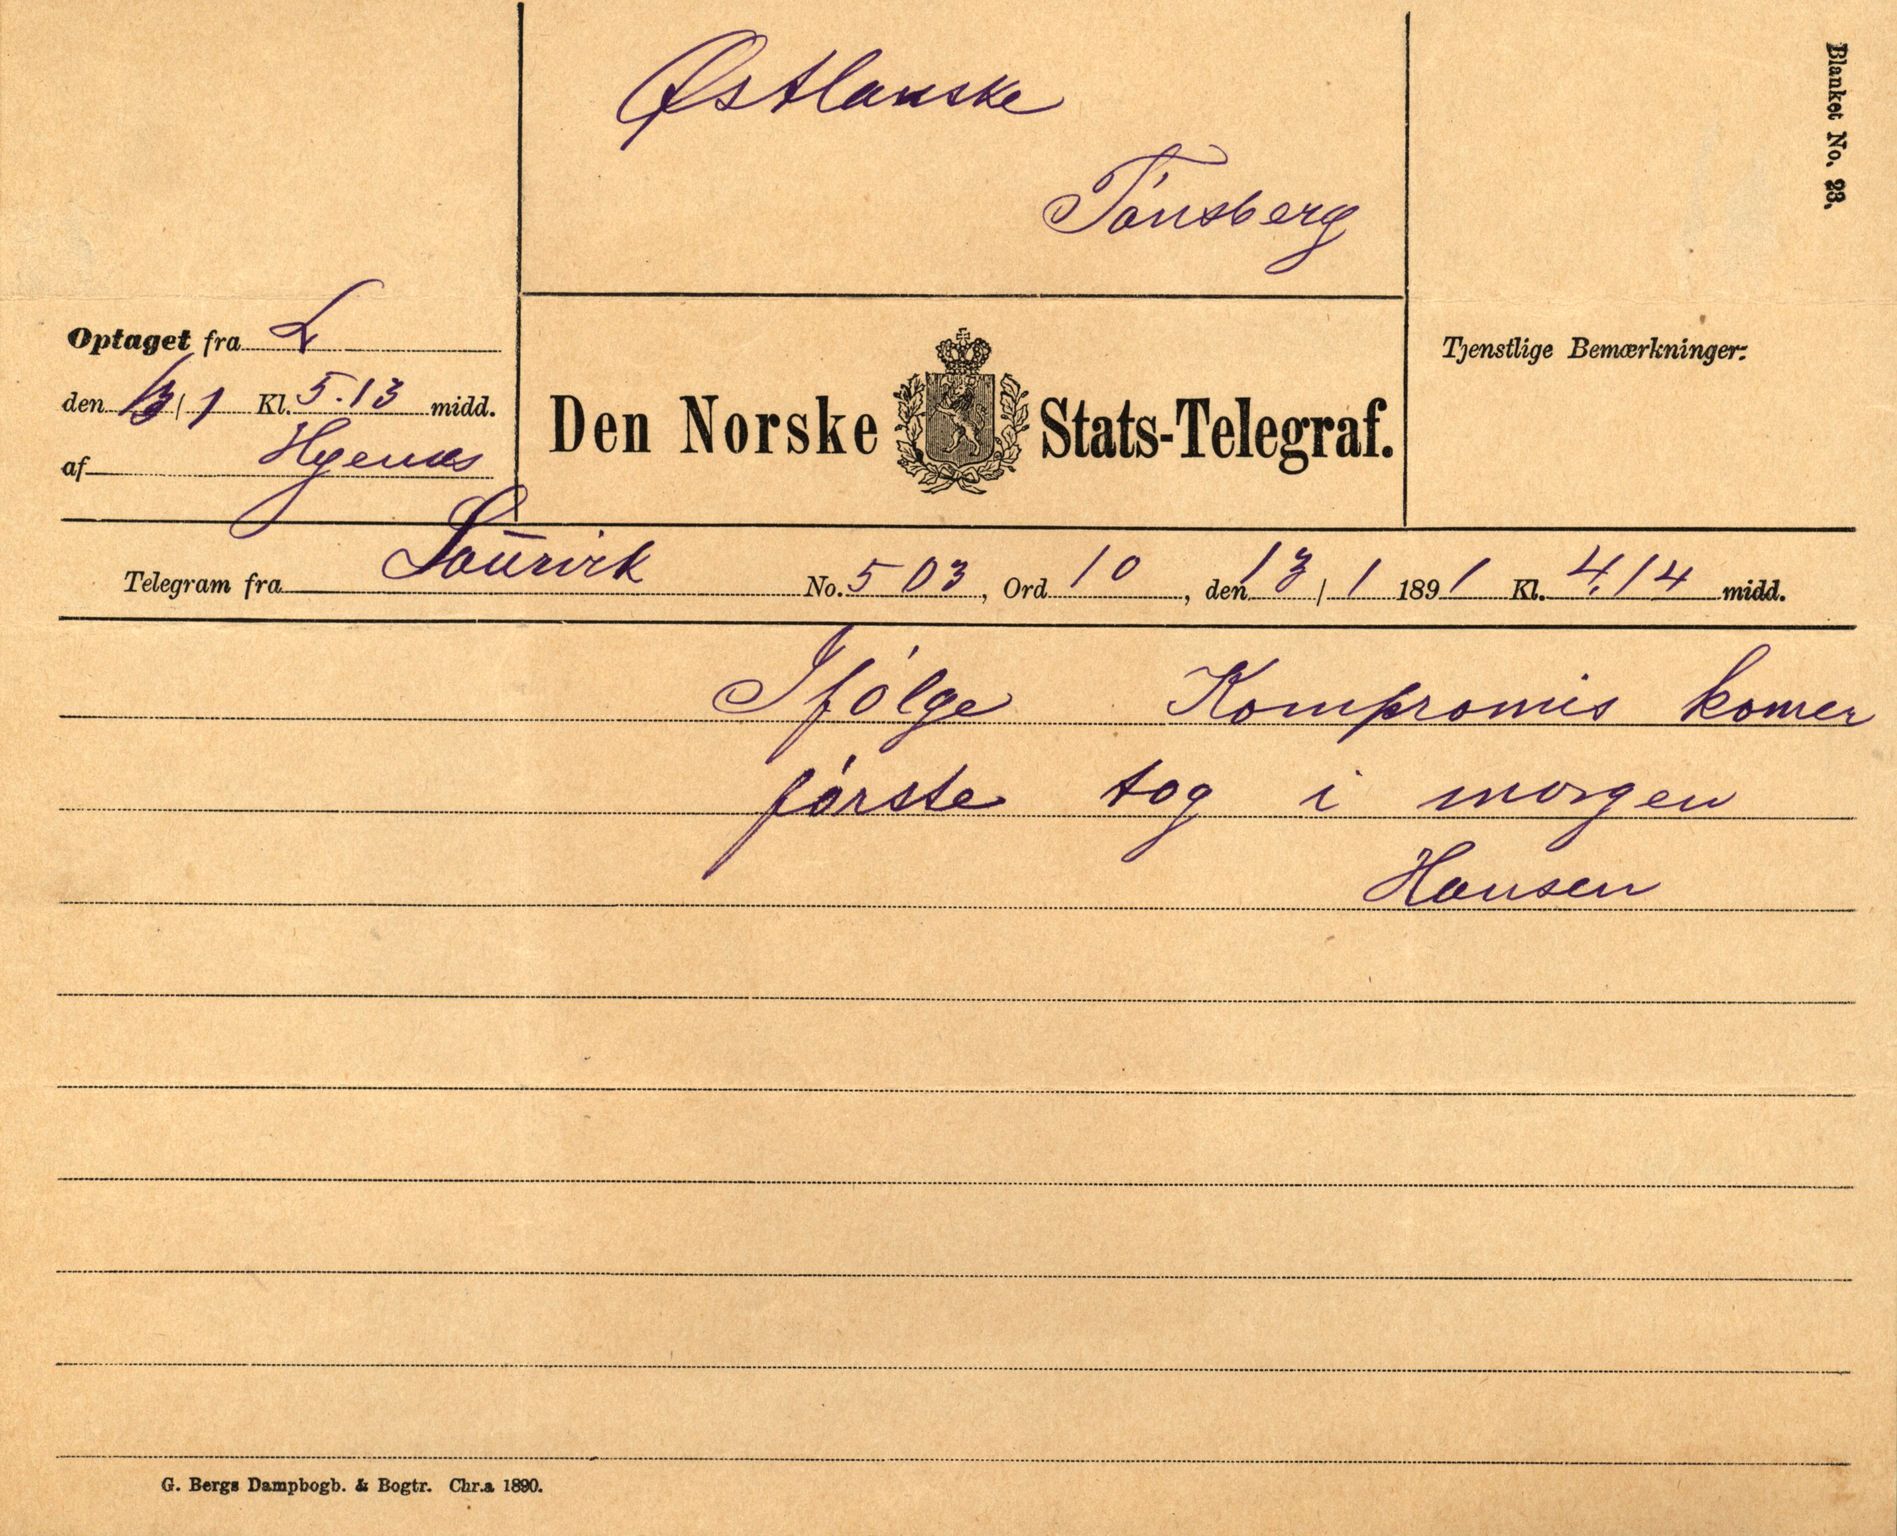 Østlanske
Tönsberg
Blanket No. 23.
Optaget fra L
den 13/1 Kl. 5.13 midd.
af
Den Norske Stats-Telegraf.
Tjenstlige Bemærkninger:
Telegram fra Laurvik No. 503, Ord 10, den 13/1 1891 Kl. 4.14 midd.
Ifólge Kompromis komer
fórste tog i morgen
Hansen
G. Bergs Dampbogb. & Bogtr. Chr.a 1890.